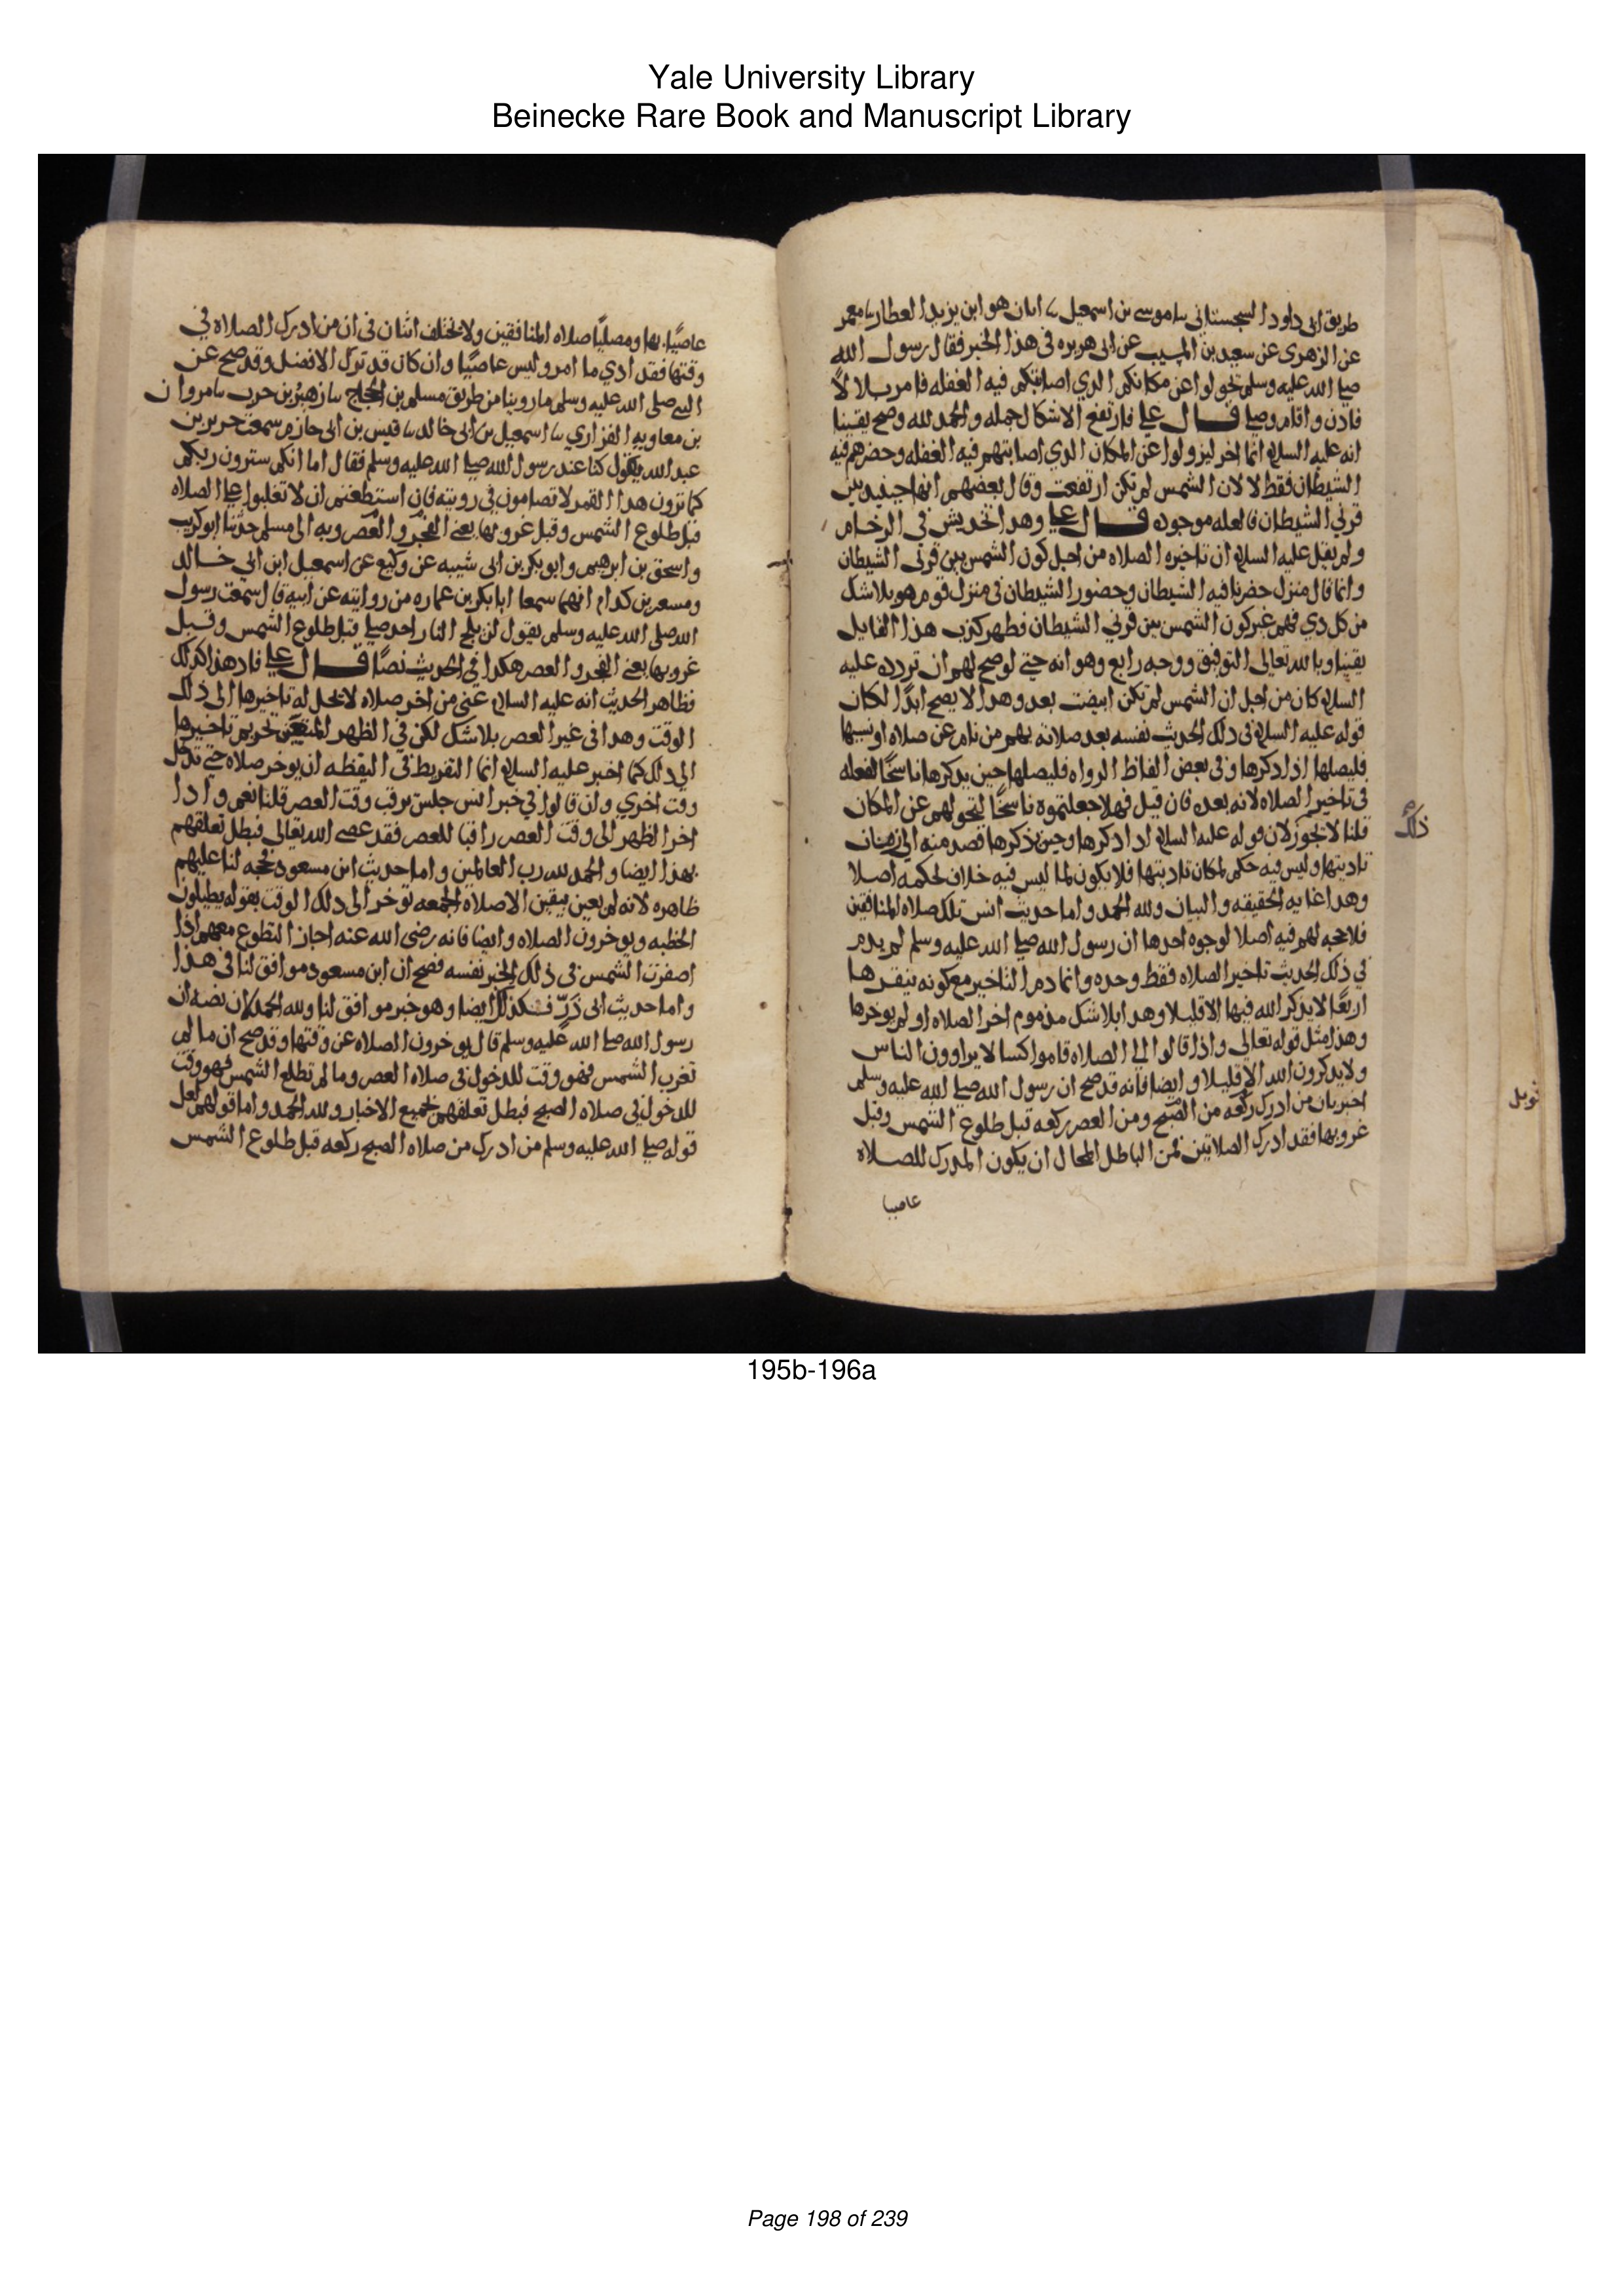 Yale University Library
Beinecke Rare Book and Manuscript Library
طريق ابى داود السجستانى ںا موسى بن اسمعيل ںا ابان هو ابن يزيد العطار ںا معمر
عن الزهرى عن سعيد بن المسيب عن ابى هريره فى هذا الخبر فقال رسول الله
صلى الله عليه وسلم تحولوا عن مكانكم الدي اصابتكم فيه الغفله فامر بلالاً
فادن واقام وصلى قال على فارتفع الاشكال جمله والحمد لله وصح يقينا
انه عليه السلام انما اخر ليزولوا عن المكان الدي اصابتهم فيه الغفله وحضرهم فيه
الشيطان فقط لا لان الشمس لم تكن ارتفعت وقال بعضهم انها حينيد بين
قرني الشيطان فالعله موجوده قال على وهدا تخديش في الرخام
ولم يقل عليه السلام ان تاخيره الصلاه من اجل كون الشمس بين قرنى الشيطان
وانما قال منزل حضرنا فيه الشيطان وحضور الشيطان فى منزل قوم هو بلا شك
من كل دي فهم غير كون الشمس بين قرني الشيطان فظهر كذب هذا القايل
يقينا وبالله تعالى التوفيق ووجه رابع وهو انه حتى لو صح لهم ان تردده عليه
السلام كان من اجل ان الشمس لم تكن ابيضت بعد وهدا لا يصح ابدًا لكان
قوله عليه السلام فى دلك الحديث نفسه بعد صلاته بهم من نام عن صلاه او نسيها
فليصلها اذا دكرها وفى بعض الفاظ الرواه فليصلها حين يدكرها ناسخًا لفعله
فى تاخير الصلاه لانه بعده فان قيل فهلا جعلتموه ناسخًا لتحولهم عن المكان
قلنا لا يجوز ذلك لان قوله عليه السلام ادا دكرها وحين يذكرها قصد منه الى زمان
تاديتها وليس فيه حكم لمكان تاديتها فلا يكون لما ليس فيه خلاف لحكمه اصلا
وهدا غايه الحقيقه والبيان ولله الحمد واما حديث انس تلك صلاه المنافقين
فلا حجه لهم فيه اصلا لوجوه احدها ان رسول الله صلى الله عليه وسلم لم يدم
في ذلك الحديث تاخير الصلاه فقط وحده وانما دم التاخير مع كونه ينقرها
اربعًا لا يذكر الله فيها الا قليلا وهدا بلا شك مذموم اخر الصلاه او لم يوخرها
وهذا مثل قوله تعالى واذا قاموا الى الصلاه قاموا كسالا يراوون الناس
ولا يدكرون الله الا قليلا وايضا فانه قد صح ان رسول الله صلى الله عليه وسلم
اخبر بان من ادرك ركعه من الصبح ومن العصر ركعه قبل طلوع الشمس وقبل
غروبها فقد ادرك الصلاتين فمن الباطل المحال ان يكون المدرك للصلاه
عاصيا
عاصيًا بها ومصليًا صلاه المنافقين ولا يختلف اثنان فى ان من ادرك الصلاه في
وقتها فقد ادي ما امر وليس عاصيًا وان كان قد ترك الافضل وقد صح عن
النبى صلى الله عليه وسلم ما روينا من طريق مسلم بن الحجاج ںا زهير بن حرب ںا مروان
بن معاويه الفزاري ںا اسمعيل بن ابى خالد ںا قيس بن ابى حازم سمعت جرير بن
عبد الله يقول كنا عند رسول الله صلى الله عليه وسلم فقال اما انكم سترون ربكم
كما ترون هدا القمر لا تضامون فى رويته فان استطعتم ان لا تغلبوا على الصلاه
قبل طلوع الشمس وقبل غروبها يعنى الفجر والعصر وبه الى مسلم حدثنا ابو كريب
واسحق بن ابرهيم وابو بكر بن ابى شيبه عن وكيع عن اسمعيل ابن ابي خالد
ومسعر بن كدام انهما سمعا ابا بكر بن عماره من روايته عن ابيه قال سمعت رسول
الله صلى الله عليه وسلم يقول لن يلج النار احد صلى قبل طلوع الشمس وقبل
غروبها يعنى الفجر والعصر هكدا في الحديث نصًا قال على فاد هذا كدلك
فظاهر الحديث انه عليه السلام عنى من اخر صلاه لا يحل له تاخيرها الى ذلك
الوقت وهدا فى غير العصر بلا شك لكن في الظهر المتعين تحريم تاخيرها
الى دلك كما اخبر عليه السلام انما التفريط فى اليقظه ان يوخر صلاه حتى تدخل
وقت اخري وان قالوا في خبر انس جلس يرقب وقت العصر قلنا نعم وادا
اخر الظهر الى وقت العصر راقبا للعصر فقد عصى الله تعالى فبطل تعلقهم
بهذا ايضا والحمد لله رب العالمين واما حديث ابن مسعود فحجه لنا عليهم
ظاهره لانه لم يعين بيقين الا صلاه الجمعه توخر الى دلك الوقت بقوله يطيلون
الخطبه ويوخرون الصلاه وايضا فانه رضى الله عنه اجاز التطوع معهم اذا
اصفرت الشمس فى ذلك الخبر نفسه فصح ان ابن مسعود موافق لنا فى هدا
واما حديث ابى ذرّ فكذلك ايضا وهو خبر موافق لنا ولله الحمد لان نصه ان
رسول الله صلى الله عليه وسلم قال يوخرون الصلاه عن وقتها وقد صح ان ما لم
تغرب الشمس فهو وقت للدخول فى صلاه العصر وما لم تطلع الشمس فهو وقت
للدخول في صلاه الصبح فبطل تعلقهم بجميع الاخبار ولله الحمد واما قولهم لعل
قوله صلى الله عليه وسلم من ادرك من صلاه الصبح ركعه قبل طلوع الشمس
195b-196a
Page 198 of 239